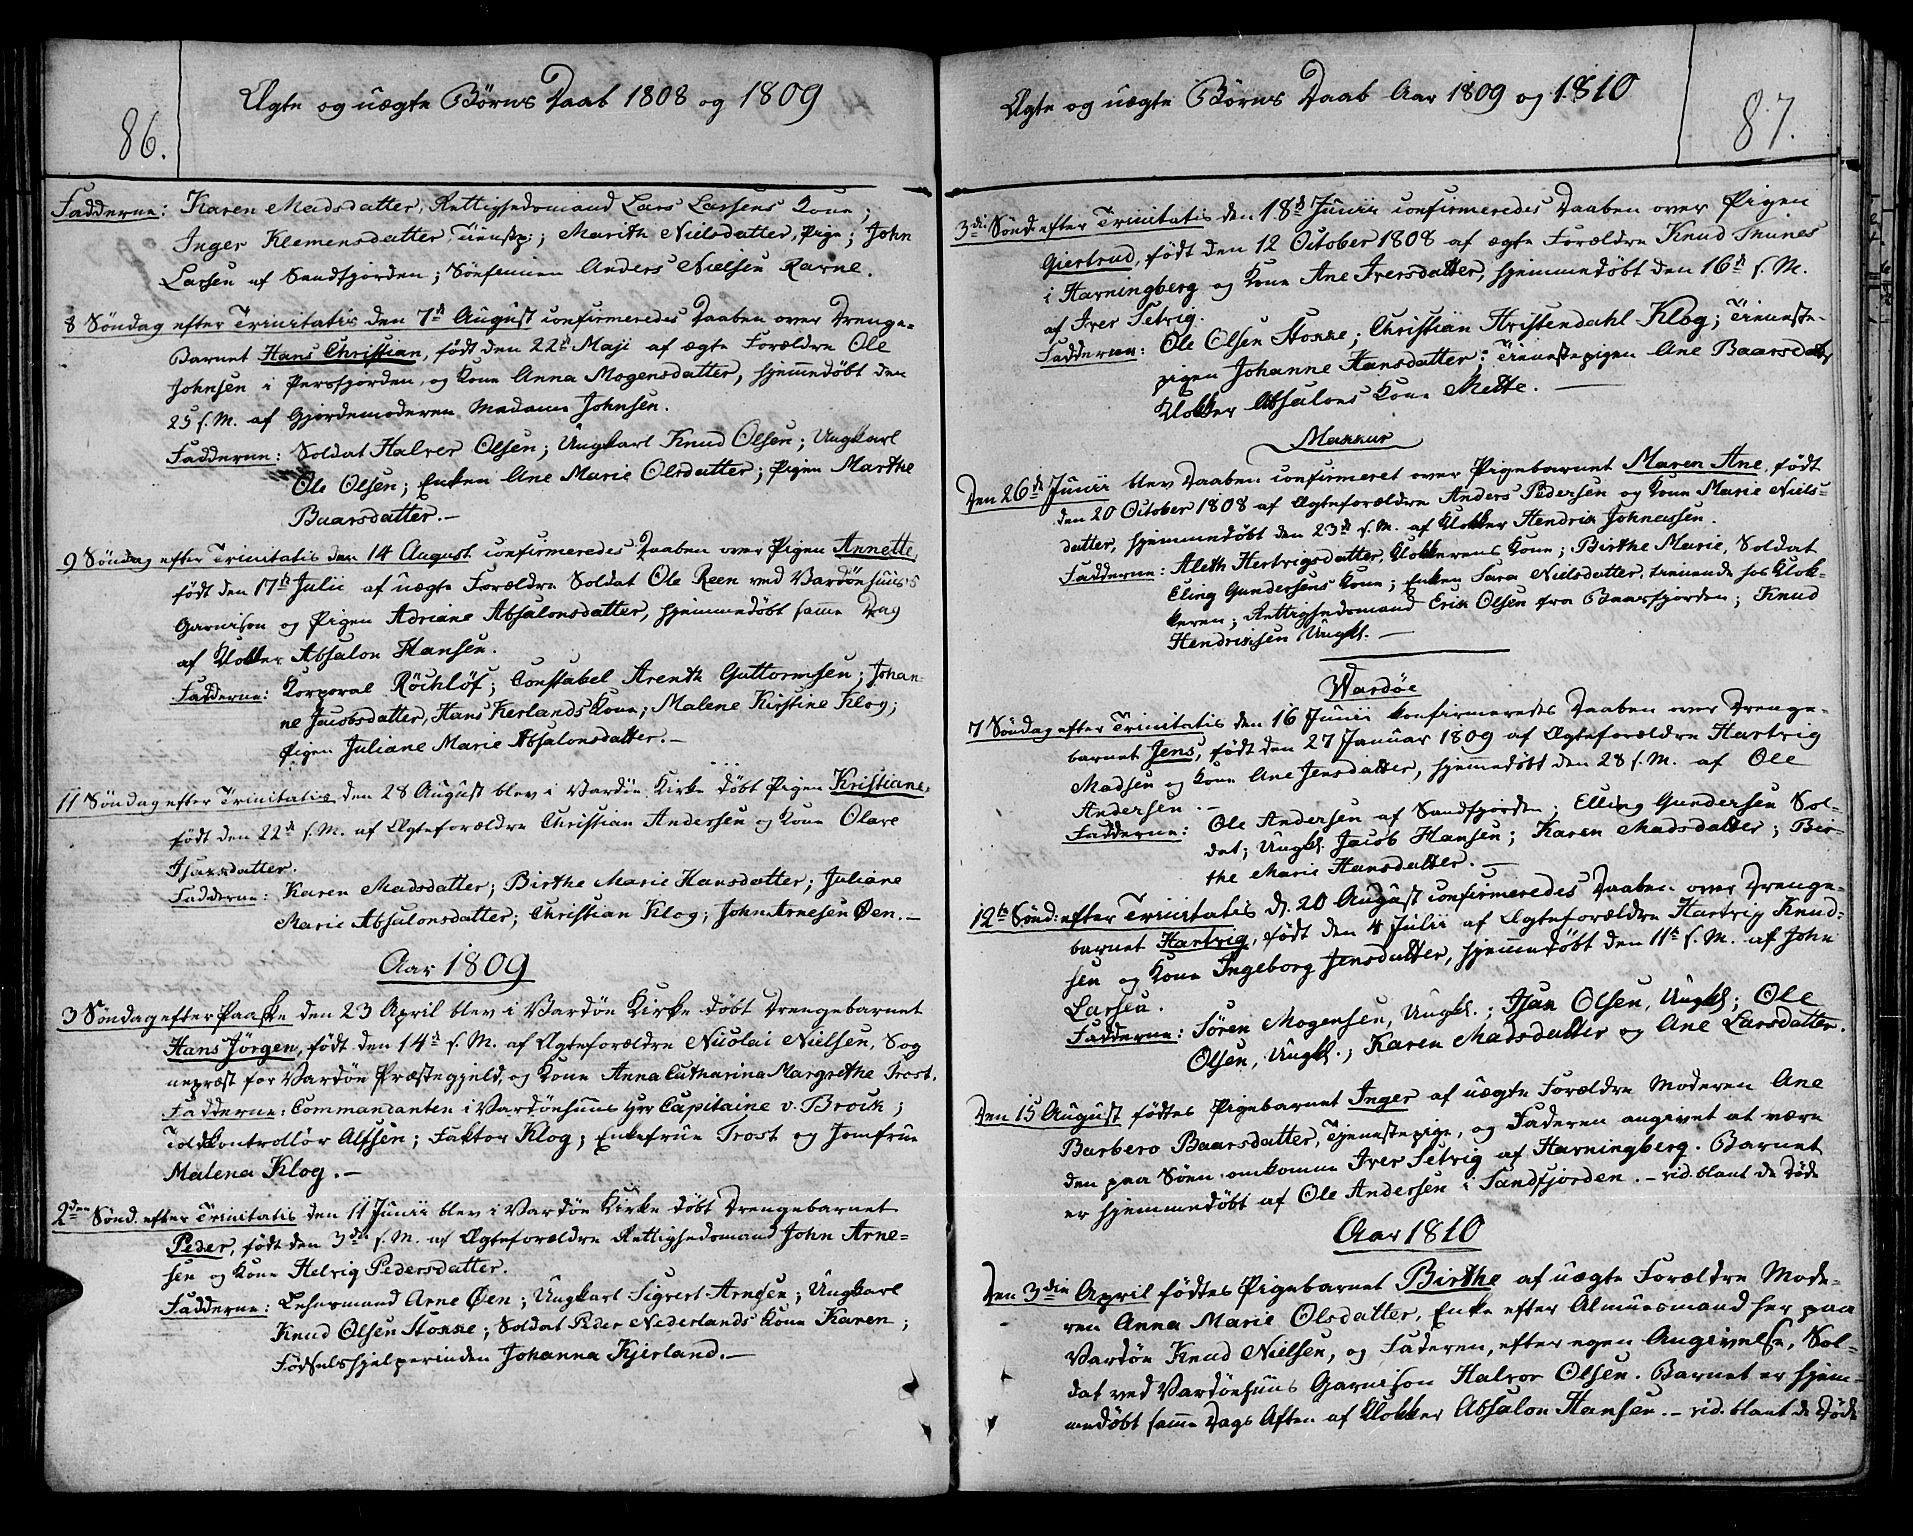 86.
Ægte og uægte Børns Daab 1808 og 1809
Fadderne: Karen Madsdatter, Rettighedsmand Lars Larsens Kone;
Inger Klemensdatter, Tienstp:; Marith Nielsdatter, Pige; John
Larsen af Sandfjorden; Sønsemien Anders Nielsen Ravne.
8 Søndag efter Trinitatis den 7de August confirmeredes Daaben over Drenge-
Barnet Hans Christian, født den 22de Maji af ægte Forældre Ole
Johnsen i Persfjorden, og Kone Anna Mogensdatter, hjemmedøbt den
25 s. M. af Gjordemoderen Madame Johnsen.
Fadderne: Soldat Halvor Olsen; Ungkarl Knud Olsen; Ungkarl
Ole Olsen; Enken Ane Marie Olsdatter; Pigen Marthe
Baarsdatter.—
9 Søndag efter Trinitatis den 14 August confirmeredes Daaben over Pigen Annette,
født den 17de Julii af uægte Forældre Soldat Ole Reen ved Vardöehuus's
Garnison og Pigen Adriane Absalonsdatter, hjemmedøbt samme Dag
af Klokker Absalon Hansen.
Fadderne: Korporal Röchlöf; Constabel Arendt Guttormsen; Johan-
ne Jacobsdatter, Hans Kerlands Kone; Malene Kirstine Klog;
Pigen Juliane Marie Absalonsdatter.—
11 Søndag efter Trinitatis den 28 August blev i Vardöe Kirke døbt Pigen Kristiane,
født den 22de s. M. af Ægteforældre Christian Andersen og Kone Olave
Isaksdatter.
Fadderne: Karen Madsdatter; Birthe Marie Hansdatter; Juliane
Marie Absalonsdatter; Christian Klog; John Arnesen Øen.—
Aar 1809
3 Søndag efter Paaske den 23 April blev i Vardöe Kirke døbt Drengebarnet
Hans Jörgen, født den 14de s. M. af Ægteforældre Nicolai Nielsen, Sog
nepræst for Vardöe Præstegjeld, og Kone Anna Catharina Margrethe Trost.
Fadderne: Commandanten i Vardöehuus Hrr Capitaine v. Brock;
Toldkontrollør Altsen; Faktor Klog; Enkefrue Trost og Jomfrue
Malena Klog.—
2den Sønd. efter Trinitatis den 11 Junii blev i Vardöe Kirke døbt Drengebarnet
Peder, født den 3die s. M. af Ægteforældre Rettighedsmand John Arne-
sen og Kone Helvig Pedersdatter.
Fadderne: Lehnsmand Arne Øen; Ungkarl Sigvert Arnesen; Ungkarl
Knud Olsen Stokke; Soldat Peder Nederlands Kone Karen;
Fødselshjelperinden Johanna Kjerland.—
Ægte og uægte Børns Daab Aar 1809 og 1810
87.
3die Sønd: efter Trinitatis den 18de Junii confirmeredes Daaben over Pigen
Giertrud, født den 12 October 1808 af ægte Forældre Knud Thunes
i Havningberg og Kone Ane Iversdatter, hjemmedøbt den 16de s. M.
af Iver Setvig.
Fadderne: Ole Olsen Stokke; Christian Hvistendahl Klog; Tieneste-
pigen Johanne Hansdatter; Tienestepigen Ane Baarsdatter
Klokker Absalons Kone Mette.—
Makkur
Den 26de Junii blev Daaben confirmeret over Pigebarnet Maren Ane, født
den 20 October 1808 af Ægteforældre Anders Pedersen og Kone Marie Niels-
datter, hjemmedøbt den 23de s. M. af Klokker Hendrik Johnassen.
Fadderne: Aleth Hertvigsdatter, Klokkerens Kone; Birthe Marie, Soldat
Eling Gundersens Kone; Enken Sara Nielsdatter, tienende hos Klok-
keren; Rettighedsmand Erik Olsen fra Baasfjorden; Knud
Hendrikssen Ungk.—
Wardöe
7 Søndag efter Trinitatis den 16 Junii konfirmeredes Daaben over Drenge-
barnet Jens, født den 27 Januar 1809 af Ægteforældre Hartvig
Madsen og Kone Ane Jensdatter, hjemmedøbt den 28 s. M. af Ole
Andersen.—
Fadderne: Ole Andersen af Sandfjorden; Elling Gundersen Sol-
dat; Ungk. Jacob Hansen; Karen Madsdatter; Bir-
the Marie Hansdatter.—
12te Sønd: efter Trinitatis d. 20 August confirmeredes Daaben over Drenge-
barnet Hartvig, født den 4 Julii af Ægteforældre Hartvig Knud-
sen og Kone Ingeborg Jensdatter, hjemmedøbt den 11te s. M. af John
Larsen.
Fadderne: Søren Mogensen, Ungk.; Isak Olsen, Ungk; Ole
Olsen, Ungk.; Karen Madsdatter og Ane Larsdatter.
Den 15 August fødtes Pigebarnet Inger af uægte Forældre Moderen Ane
Barbero Baarsdatter, Tjenestepige, og Faderen angivet at være
den paa Søen omkomne Iver Setvig af Havningberg. Barnet
er hjemmedøbt af Ole Andersen i Sandfjorden.— vid. blant de Døde
Aar 1810
Den 3die April fødtes Pigebarnet Birthe af uægte Forældre Mode-
ren Anna Marie Olsdatter, Enke efter Almuesmand her paa
Vardöe Knud Nielsen, og Faderen, efter egen Angivelse, Sol-
dat ved Vardöehuus Garnison Halvor Olsen. Barnet er hjem-
medøbt samme Dags Aften af Klokker Absalon Hansen.— vid. blant de Døde